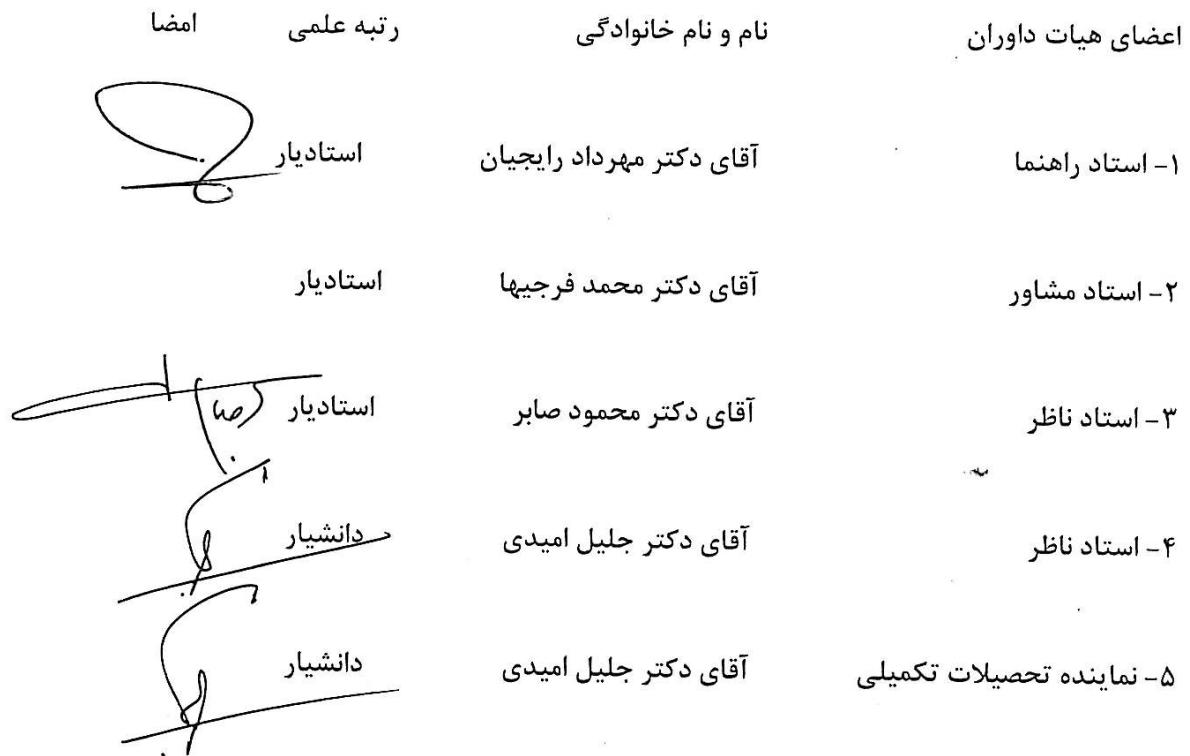 اعضای هیات داوران نام و نام خانوادگی رتبه علمی امضا
۱- استاد راهنما آقای دکتر مهرداد رایجیان استادیار
۲- استاد مشاور آقای دکتر محمد فرجیها استادیار
۳- استاد ناظر آقای دکتر محمود صابر استادیار
۴- استاد ناظر آقای دکتر جلیل امیدی دانشیار
۵- نماینده تحصیلات تکمیلی آقای دکتر جلیل امیدی دانشیار